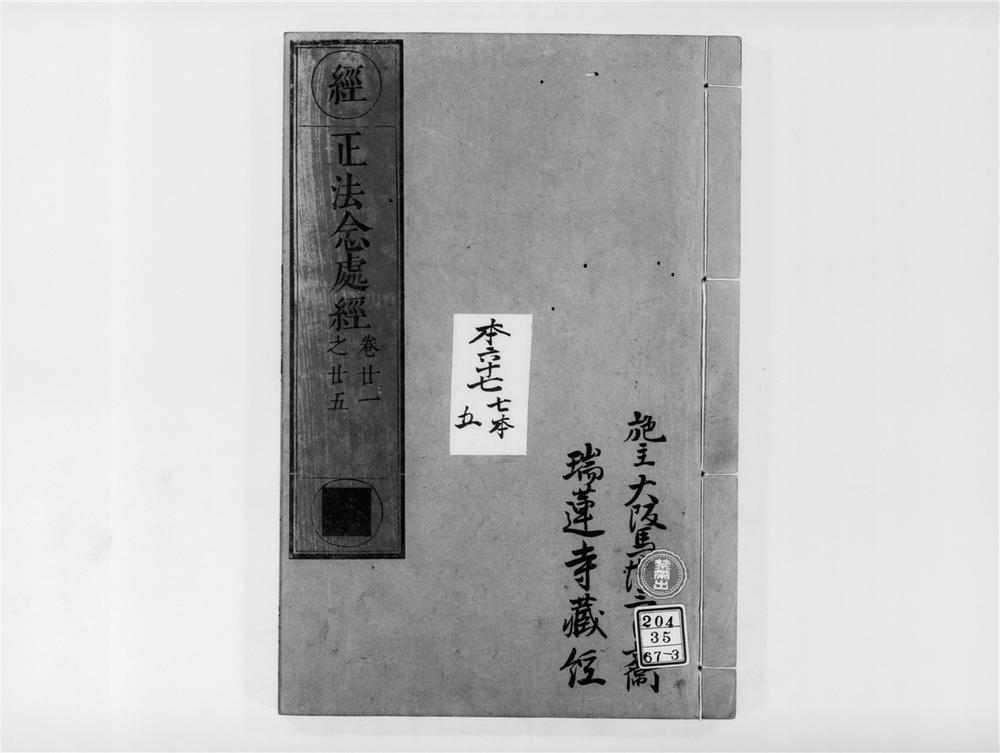 施主大阪馬
瑞蓮寺藏経
禁帶出
204
35
67-3
本六十七 七本
五
經
正法念處經
卷廿一
之廿五